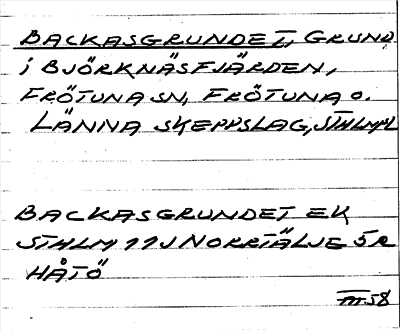 BACKASGRUNDET, GRUND
i BJÖRKNÄSFJÄRDEN,
FRÖTUNA SN, FRÖTUNA O.
LÄNNA SKEPPSLAG, STHLMSL
BACKASGRUNDET EK
STHLM 11J NORRTÄLJE SR
HÅTÖ
III 58